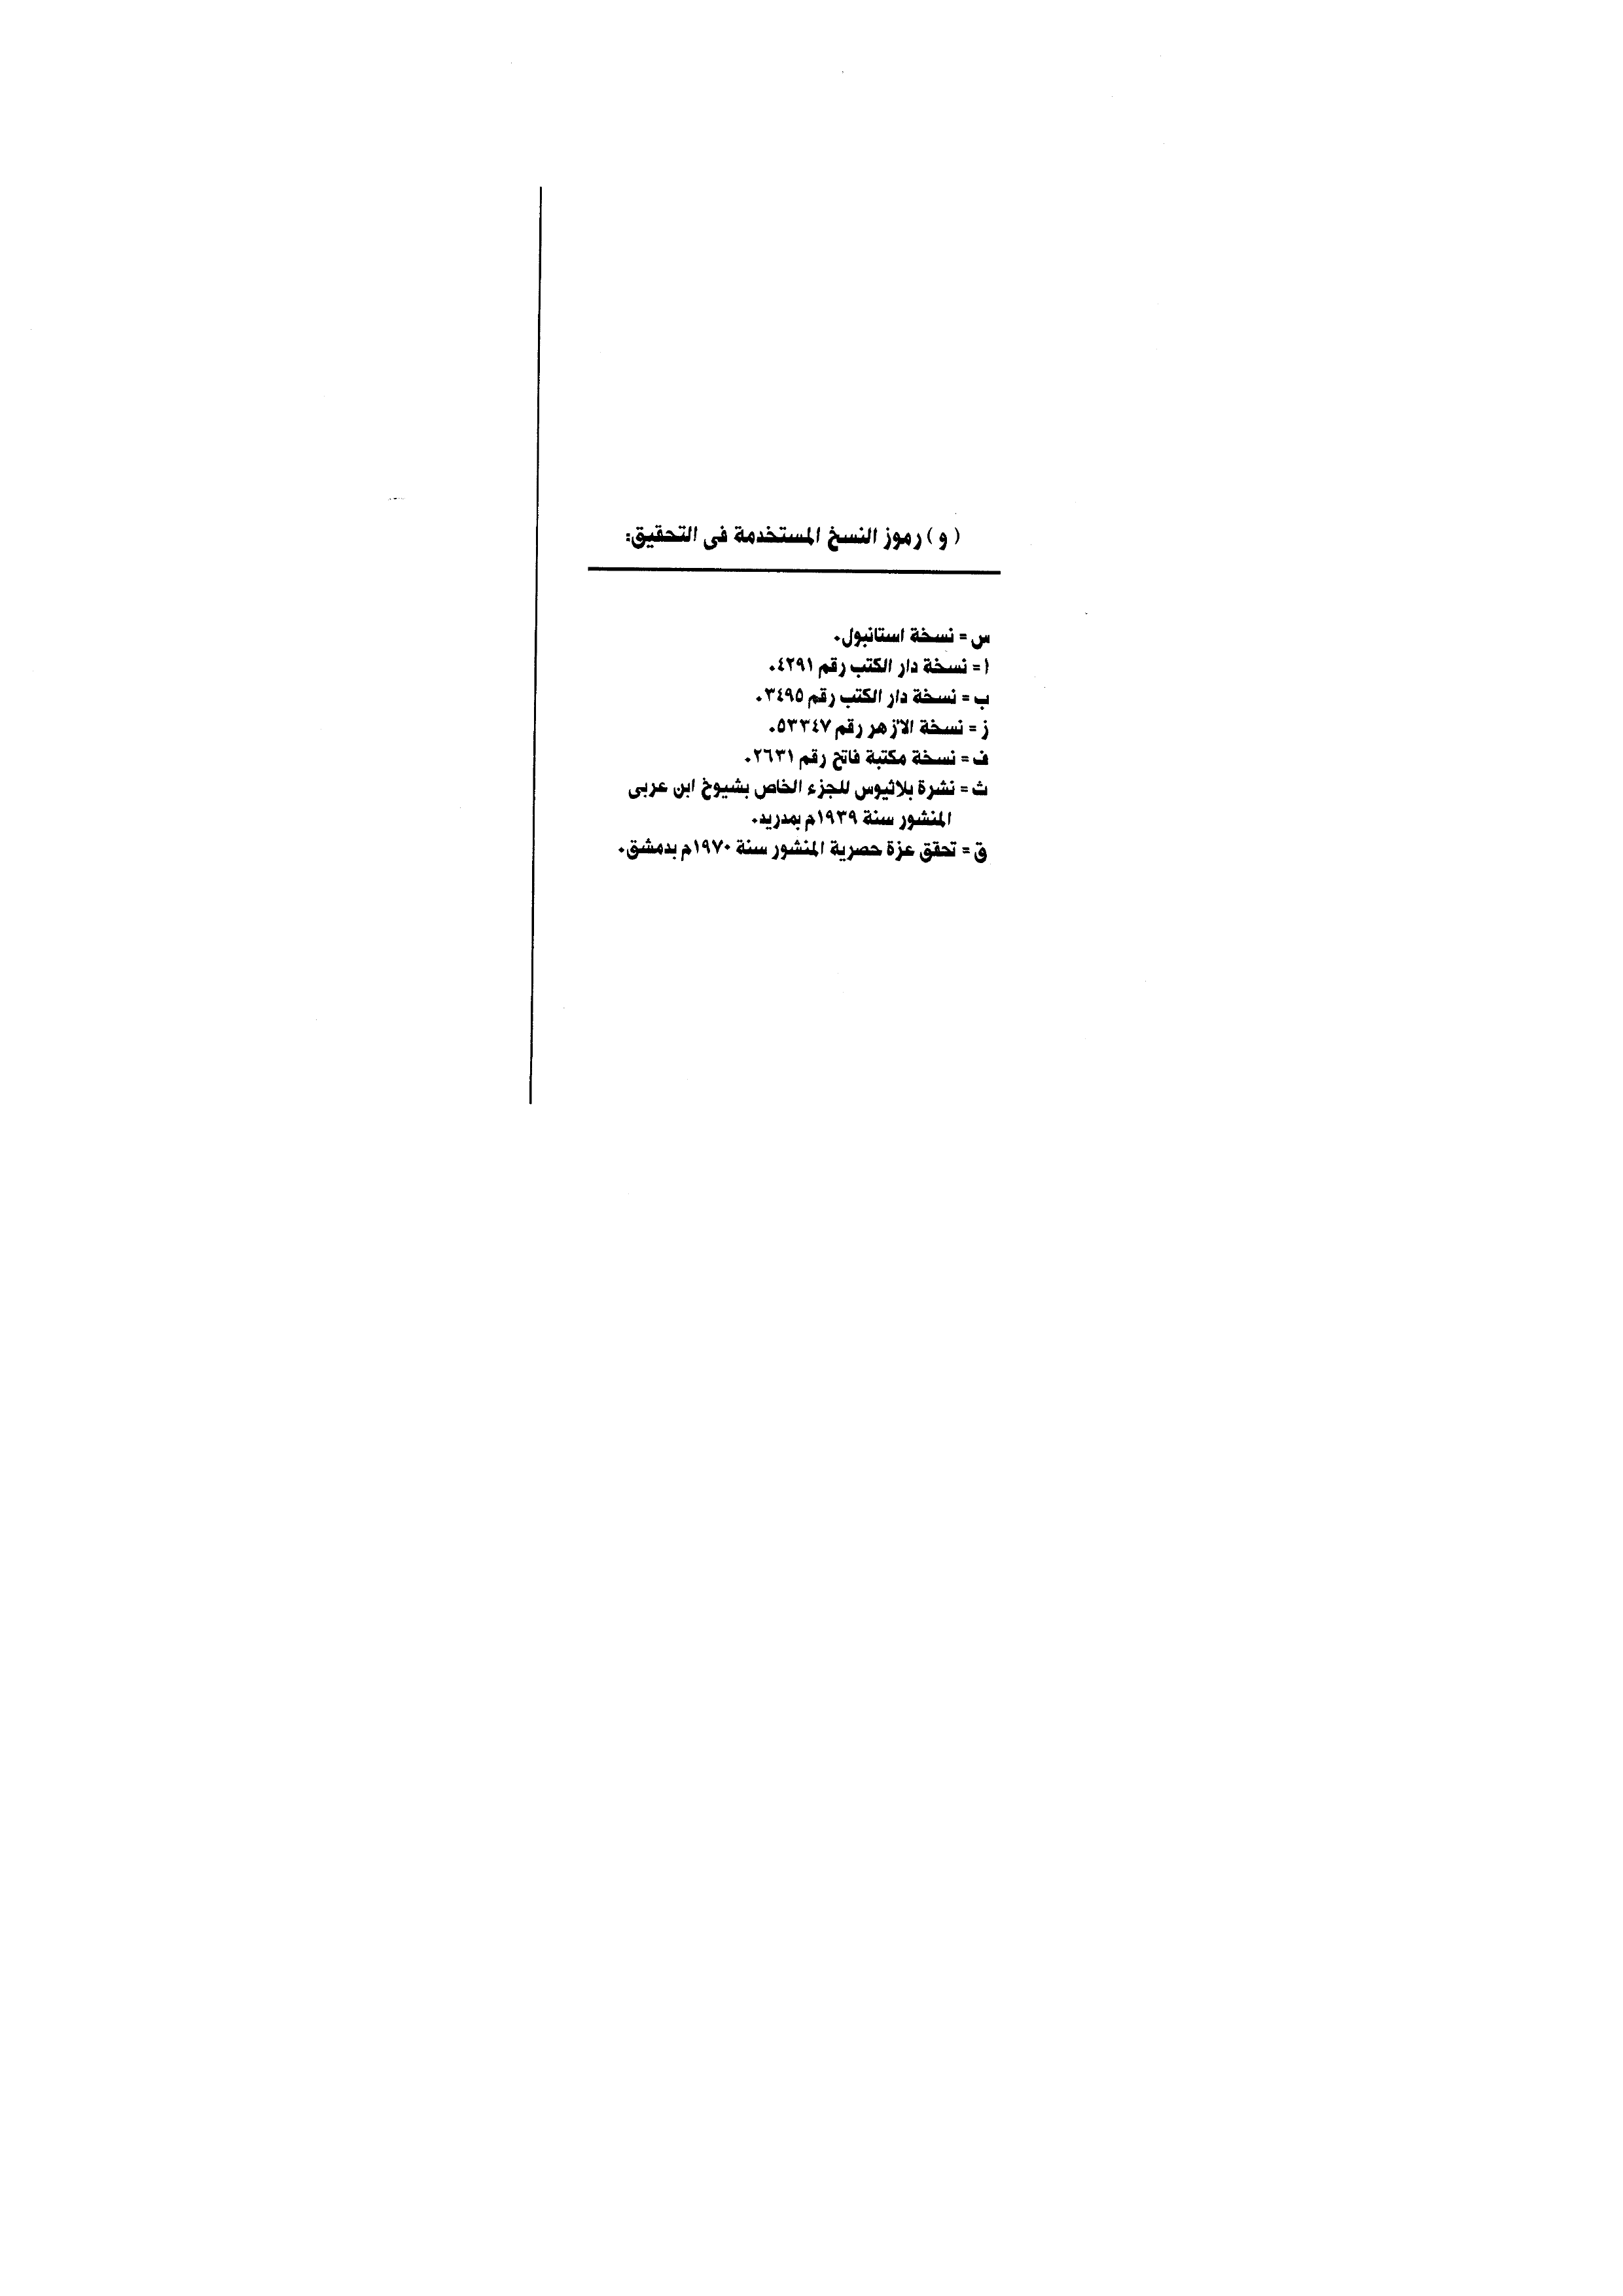 (و) رموز النسخ المستخدمة فى التحقيق:
س = نسخة استانبول.
ا = نسخة دار الكتب رقم ٤٢٩١.
ب = نسخة دار الكتب رقم ٣٤٩٥.
ز = نسخة الأزهر رقم ٥٣٣٤٧.
ف = نسخة مكتبة فاتح رقم ٢٦٣١.
ث = نشرة بلاثيوس للجزء الخاص بشيوخ ابن عربى
المنشور سنة ١٩٣٩م بمدريد.
ق = تحقق عزة حصرية المنشور سنة ١٩٧٠م بدمشق.